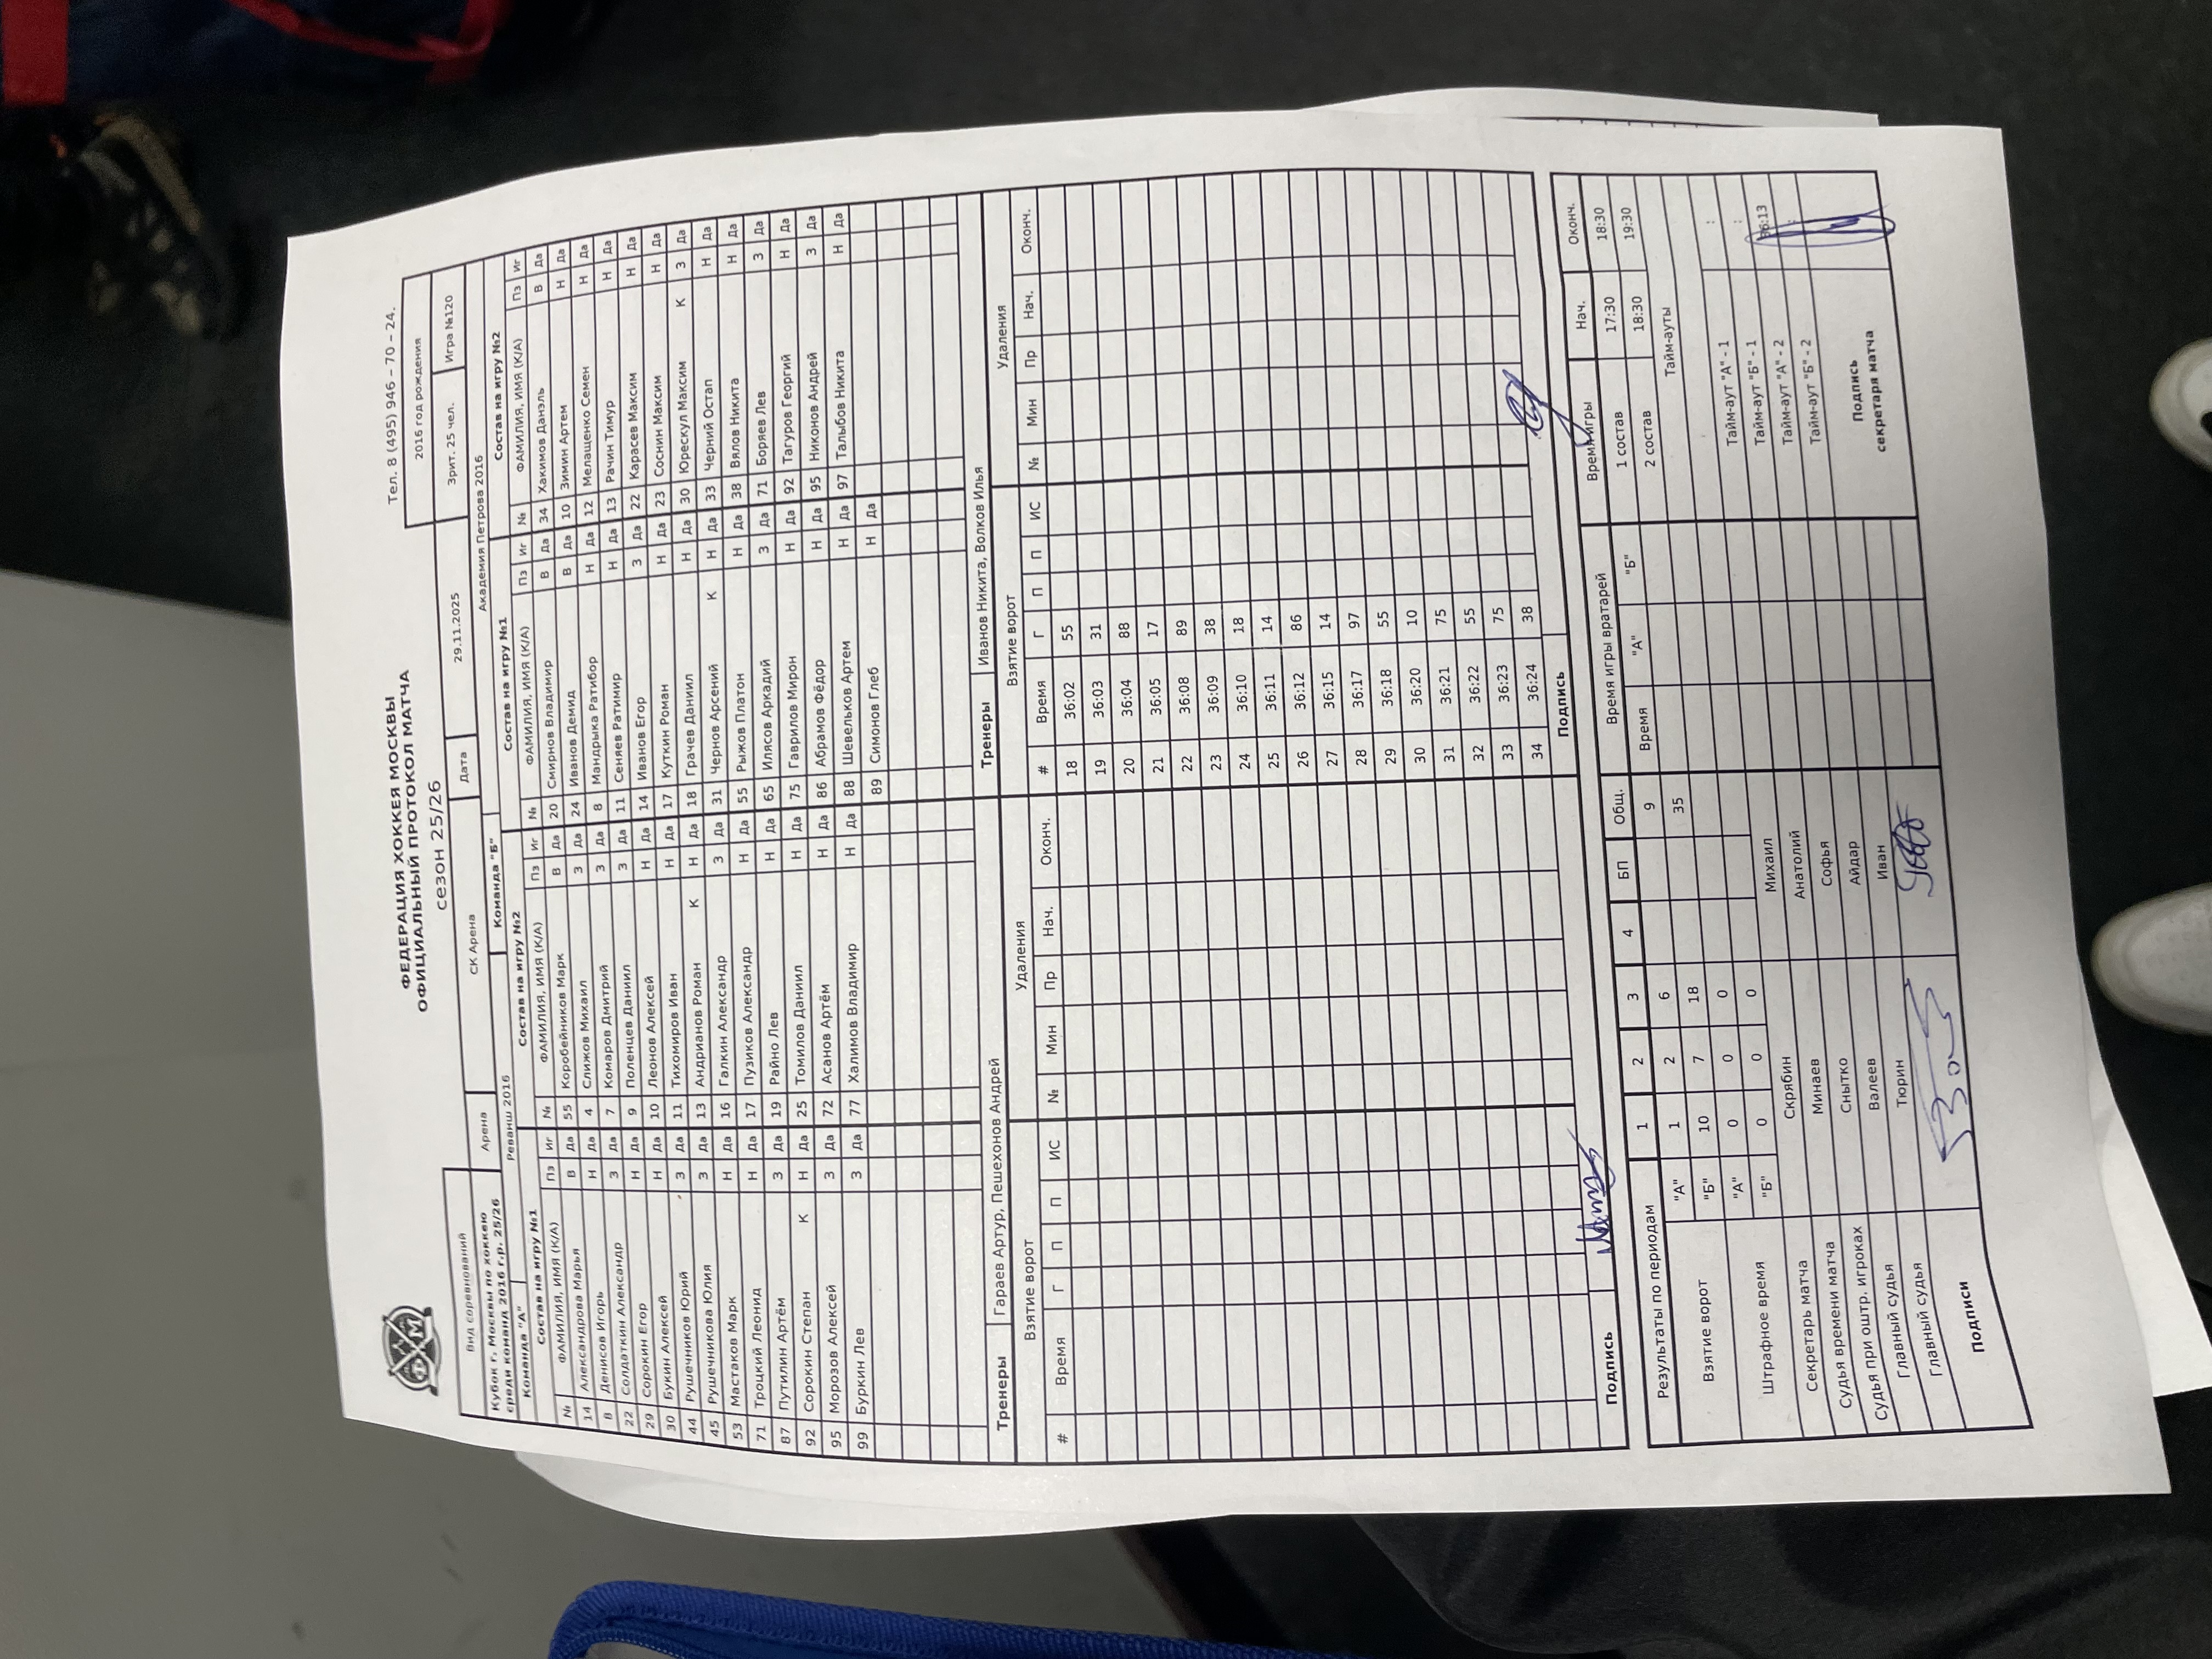 Тел. 8 (495) 946 – 70 – 24.
ФЕДЕРАЦИЯ ХОККЕЯ МОСКВЫ
ОФИЦИАЛЬНЫЙ ПРОТОКОЛ МАТЧА
сезон 25/26
2016 год рождения
Вид соревнований Арена СК Арена Дата 29.11.2025 Зрит. 25 чел. Игра №120
Кубок г. Москвы по хоккею
среди команд 2016 г.р. 25/26
Команда "А" Реванш 2016 Команда "Б" Академия Петрова 2016
Состав на игру №1 Состав на игру №2 Состав на игру №1 Состав на игру №2
№ ФАМИЛИЯ, ИМЯ (К/А) Пз Иг № ФАМИЛИЯ, ИМЯ (К/А) Пз Иг № ФАМИЛИЯ, ИМЯ (К/А) Пз Иг № ФАМИЛИЯ, ИМЯ (К/А) Пз Иг
14 Александрова Марья В Да 55 Коробейников Марк В Да 20 Смирнов Владимир В Да 34 Хакимов Данэль В Да
8 Денисов Игорь Н Да 4 Слижов Михаил З Да 24 Иванов Демид В Да 10 Зимин Артем Н Да
22 Солдаткин Александр З Да 7 Комаров Дмитрий З Да 8 Мандрыка Ратибор Н Да 12 Мелащенко Семен Н Да
29 Сорокин Егор Н Да 9 Поленцев Даниил З Да 11 Сеняев Ратимир Н Да 13 Рачин Тимур Н Да
30 Букин Алексей Н Да 10 Леонов Алексей Н Да 14 Иванов Егор З Да 22 Карасев Максим Н Да
44 Рушечников Юрий З Да 11 Тихомиров Иван Н Да 17 Куткин Роман Н Да 23 Соснин Максим Н Да
45 Рушечникова Юлия З Да 13 Андрианов Роман К Н Да 18 Грачев Даниил Н Да 30 Юрескул Максим К З Да
53 Мастаков Марк Н Да 16 Галкин Александр З Да 31 Чернов Арсений К Н Да 33 Черний Остап Н Да
71 Троцкий Леонид Н Да 17 Пузиков Александр Н Да 55 Рыжов Платон Н Да 38 Вялов Никита Н Да
87 Путилин Артём З Да 19 Райно Лев Н Да 65 Илясов Аркадий З Да 71 Боряев Лев З Да
92 Сорокин Степан К Н Да 25 Томилов Даниил Н Да 75 Гаврилов Мирон Н Да 92 Тагуров Георгий Н Да
95 Морозов Алексей З Да 72 Асанов Артём Н Да 86 Абрамов Фёдор Н Да 95 Никонов Андрей З Да
99 Буркин Лев З Да 77 Халимов Владимир Н Да 88 Шевельков Артем Н Да 97 Талыбов Никита Н Да
89 Симонов Глеб Н Да
Тренеры Гараев Артур, Пешехонов Андрей Тренеры Иванов Никита, Волков Илья
Взятие ворот Удаления Взятие ворот Удаления
# Время Г П П ИС № Мин Пр Нач. Оконч. # Время Г П П ИС № Мин Пр Нач. Оконч.
18 36:02 55
19 36:03 31
20 36:04 88
21 36:05 17
22 36:08 89
23 36:09 38
24 36:10 18
25 36:11 14
26 36:12 86
27 36:15 14
28 36:17 97
29 36:18 55
30 36:20 10
31 36:21 75
32 36:22 55
33 36:23 75
34 36:24 38
Подпись Подпись
Результаты по периодам 1 2 3 4 БП Общ. Время игры вратарей Время игры Нач. Оконч.
Взятие ворот "А" 1 2 6 9 Время "А" "Б" 1 состав 17:30 18:30
"Б" 10 7 18 35 2 состав 18:30 19:30
Штрафное время "А" 0 0 0 Тайм-ауты
"Б" 0 0 0
Секретарь матча Скрябин Михаил Тайм-аут "А" - 1 :
Судья времени матча Минаев Анатолий Тайм-аут "Б" - 1 :
Судья при оштр. игроках Снытко Софья Тайм-аут "А" - 2 36:13
Главный судья Валеев Айдар Тайм-аут "Б" - 2 :
Главный судья Тюрин Иван
Подписи
Подпись
секретаря матча